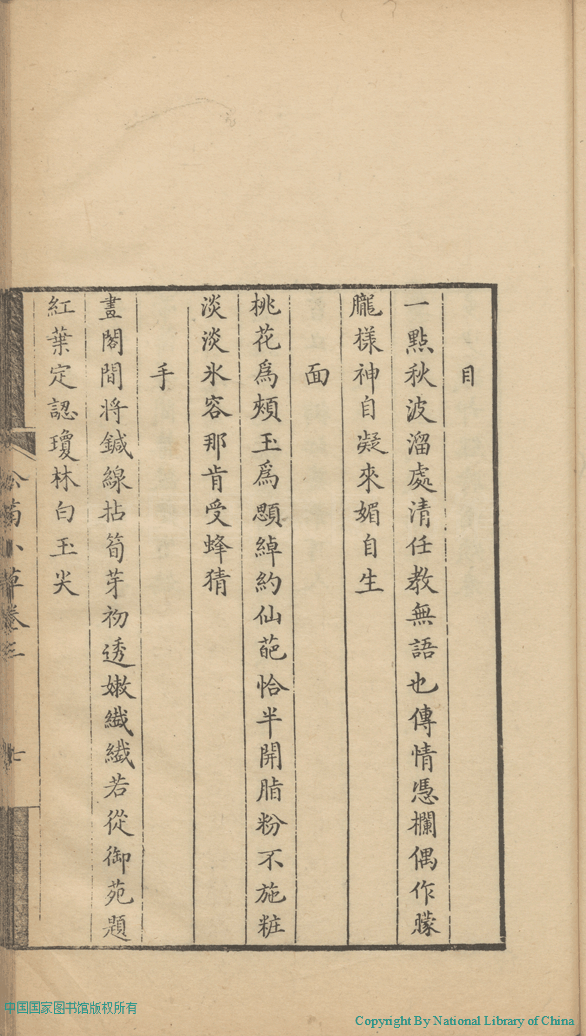 目
一點秋波溜處清任教無語也傳情憑欄偶作朦
朧樣神自凝來媚自生
面
桃花爲頰玉爲顋綽約仙葩恰半開脂粉不施粧
淡淡氷容那肯受蜂猜
手
畫閣閒將鍼線拈筍芽初透嫩纎纎若從御苑題
紅葉定認瓊林白玉尖
小草卷三
七
中国国家图书馆版权所有
Copyright By National Library of China